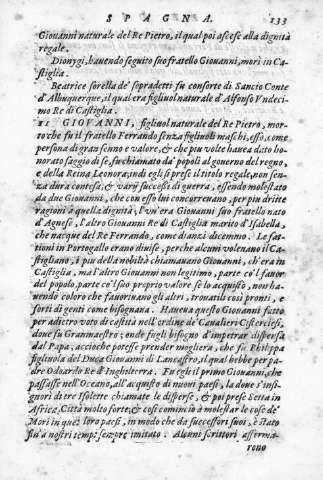 SPAGNA. 133
Giouanni naturale del Re Pietro, il qual poi ascese alla dignità
regale.
Dionygi, hauendo seguito suo fratello Giouanni, morì in Ca-
stiglia.
Beatrice sorella de' sopradetti fu consorte di Sancio Conte
d'Albuquerque, il qual era figliuol naturale d'Alfonso Vndeci-
mo Re di Castiglia.
11 GIOVANNI, figliuol naturale del Re Pietro, mor-
to che fu il fratello Ferrando senza figliuoli maschi, esso, come
persona di gran senno e valore, & che piu volte haueua dato ho-
norato saggio di se, fu chiamato da' popoli al gouerno del regno,
e della Reina Leonora; indi egli si prese il titolo regale, non sen-
za dura contesa, & varij successi di guerra, essendo molestato
da due Giouanni, che con esso lui concorreuano, per piu diritte
ragioni à quella dignità, l'vn'era Giouanni suo fratello nato
d'Agnese, l'altro Giouanni Re di Castiglia marito d'Isabella,
che nacque del Re Ferrando, come dianzi dicemmo. Le fat-
tioni in Portogallo erano diuise, perche alcuni voleuano il Ca-
stigliano, i piu della nobiltà chiamauano Giouanni, ch'era in
Castiglia, ma l'altro Giouanni non legitimo, parte co'l fauor
del popolo, parte co'l suo proprio valore se lo acquistò, non ha-
uendo coloro che fauoriuano gli altri, trouatili così pronti, e
forti di genti come bisognaua. Haueua questo Giouanni fatto
per adietro voto di castità nell'ordine de' Caualieri Cisterciesi,
doue fu Granmaestro; onde fugli bisogno d'impetrar dispensa
dal Papa, accioche potesse prender mogliera, che fu Philippa
figliuola del Duca Giouanni di Lancastro, il qual hebbe per pa-
dre Odoardo Re d'Inghilterra. Fu egli il primo Giouanni, che
passasse nell'Oceano, all'acquisto di nuoui paesi, la doue s'insi-
gnorì di tre Isolette chiamate le disperse, & poi prese Setta in
Africa, Città molto forte, & così cominciò à molestar le cose de'
Mori in que' loro paesi, in modo che da' successori suoi, è stato
fin' à nostri tempi sempre imitato. Alcuni scrittori afferma-
rono